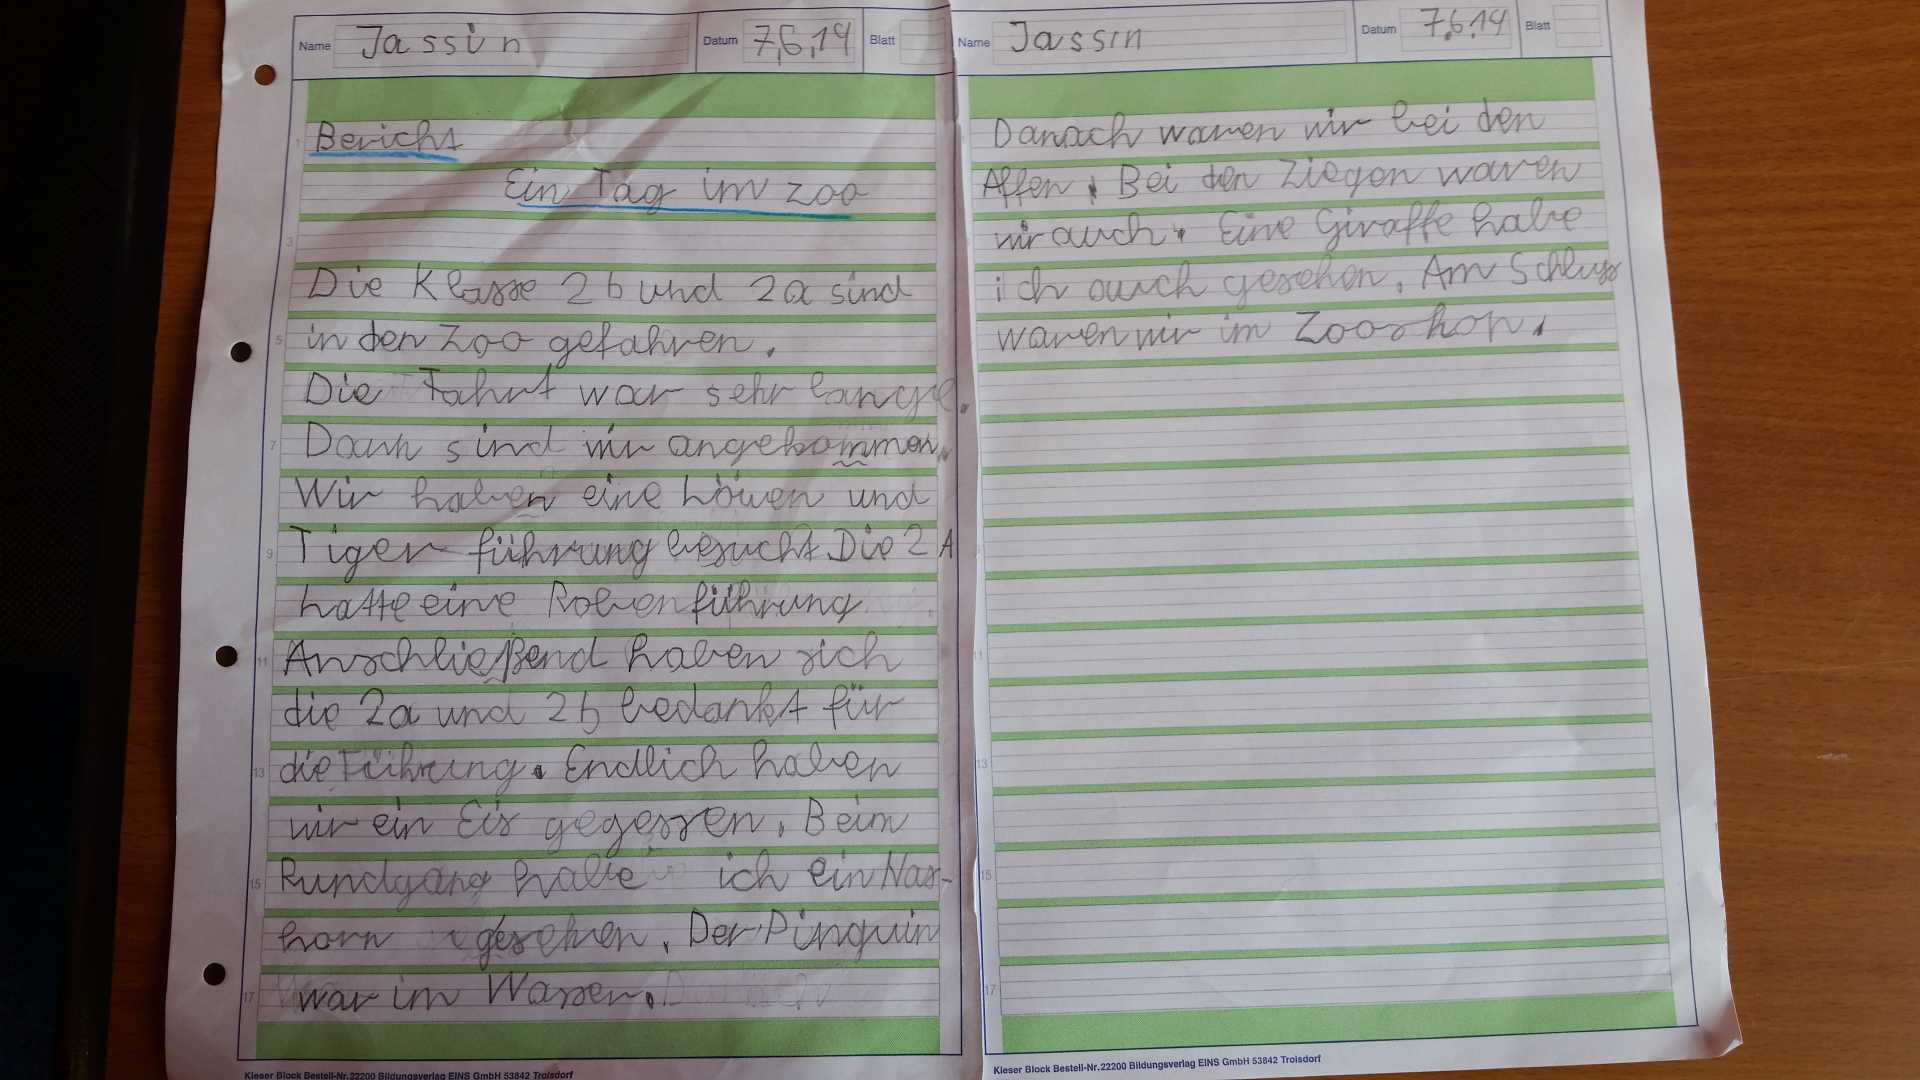 Name Jassin Datum 7.6.14 Blatt
1 Bericht
Ein Tag im Zoo
3
Die Klasse 2b und 2a sind
5 in den Zoo gefahren.
Die Fahrt war sehr lange.
7 Dann sind wir angekommen.
Wir haben eine Löwen und
9 Tiger führung besucht. Die 2A
hatte eine Robenführung
11 Anschließend haben sich
die 2a und 2b bedankt für
13 die Führung. Endlich haben
wir ein Eis gegessen. Beim
15 Rundgang habe ich ein Nas-
horn gesehen. Der Pinguin
17 war im Wasser.
Kieser Block Bestell-Nr. 22200 Bildungsverlag EINS GmbH 53842 Troisdorf
Name Jassin Datum 7.6.14 Blatt
Danach waren wir bei den
Affen. Bei den Ziegen waren
wir auch. Eine Giraffe habe
ich auch gesehen. Am Schluss
waren wir im Zooshop.
11
13
15
17
Kieser Block Bestell-Nr. 22200 Bildungsverlag EINS GmbH 53842 Troisdorf